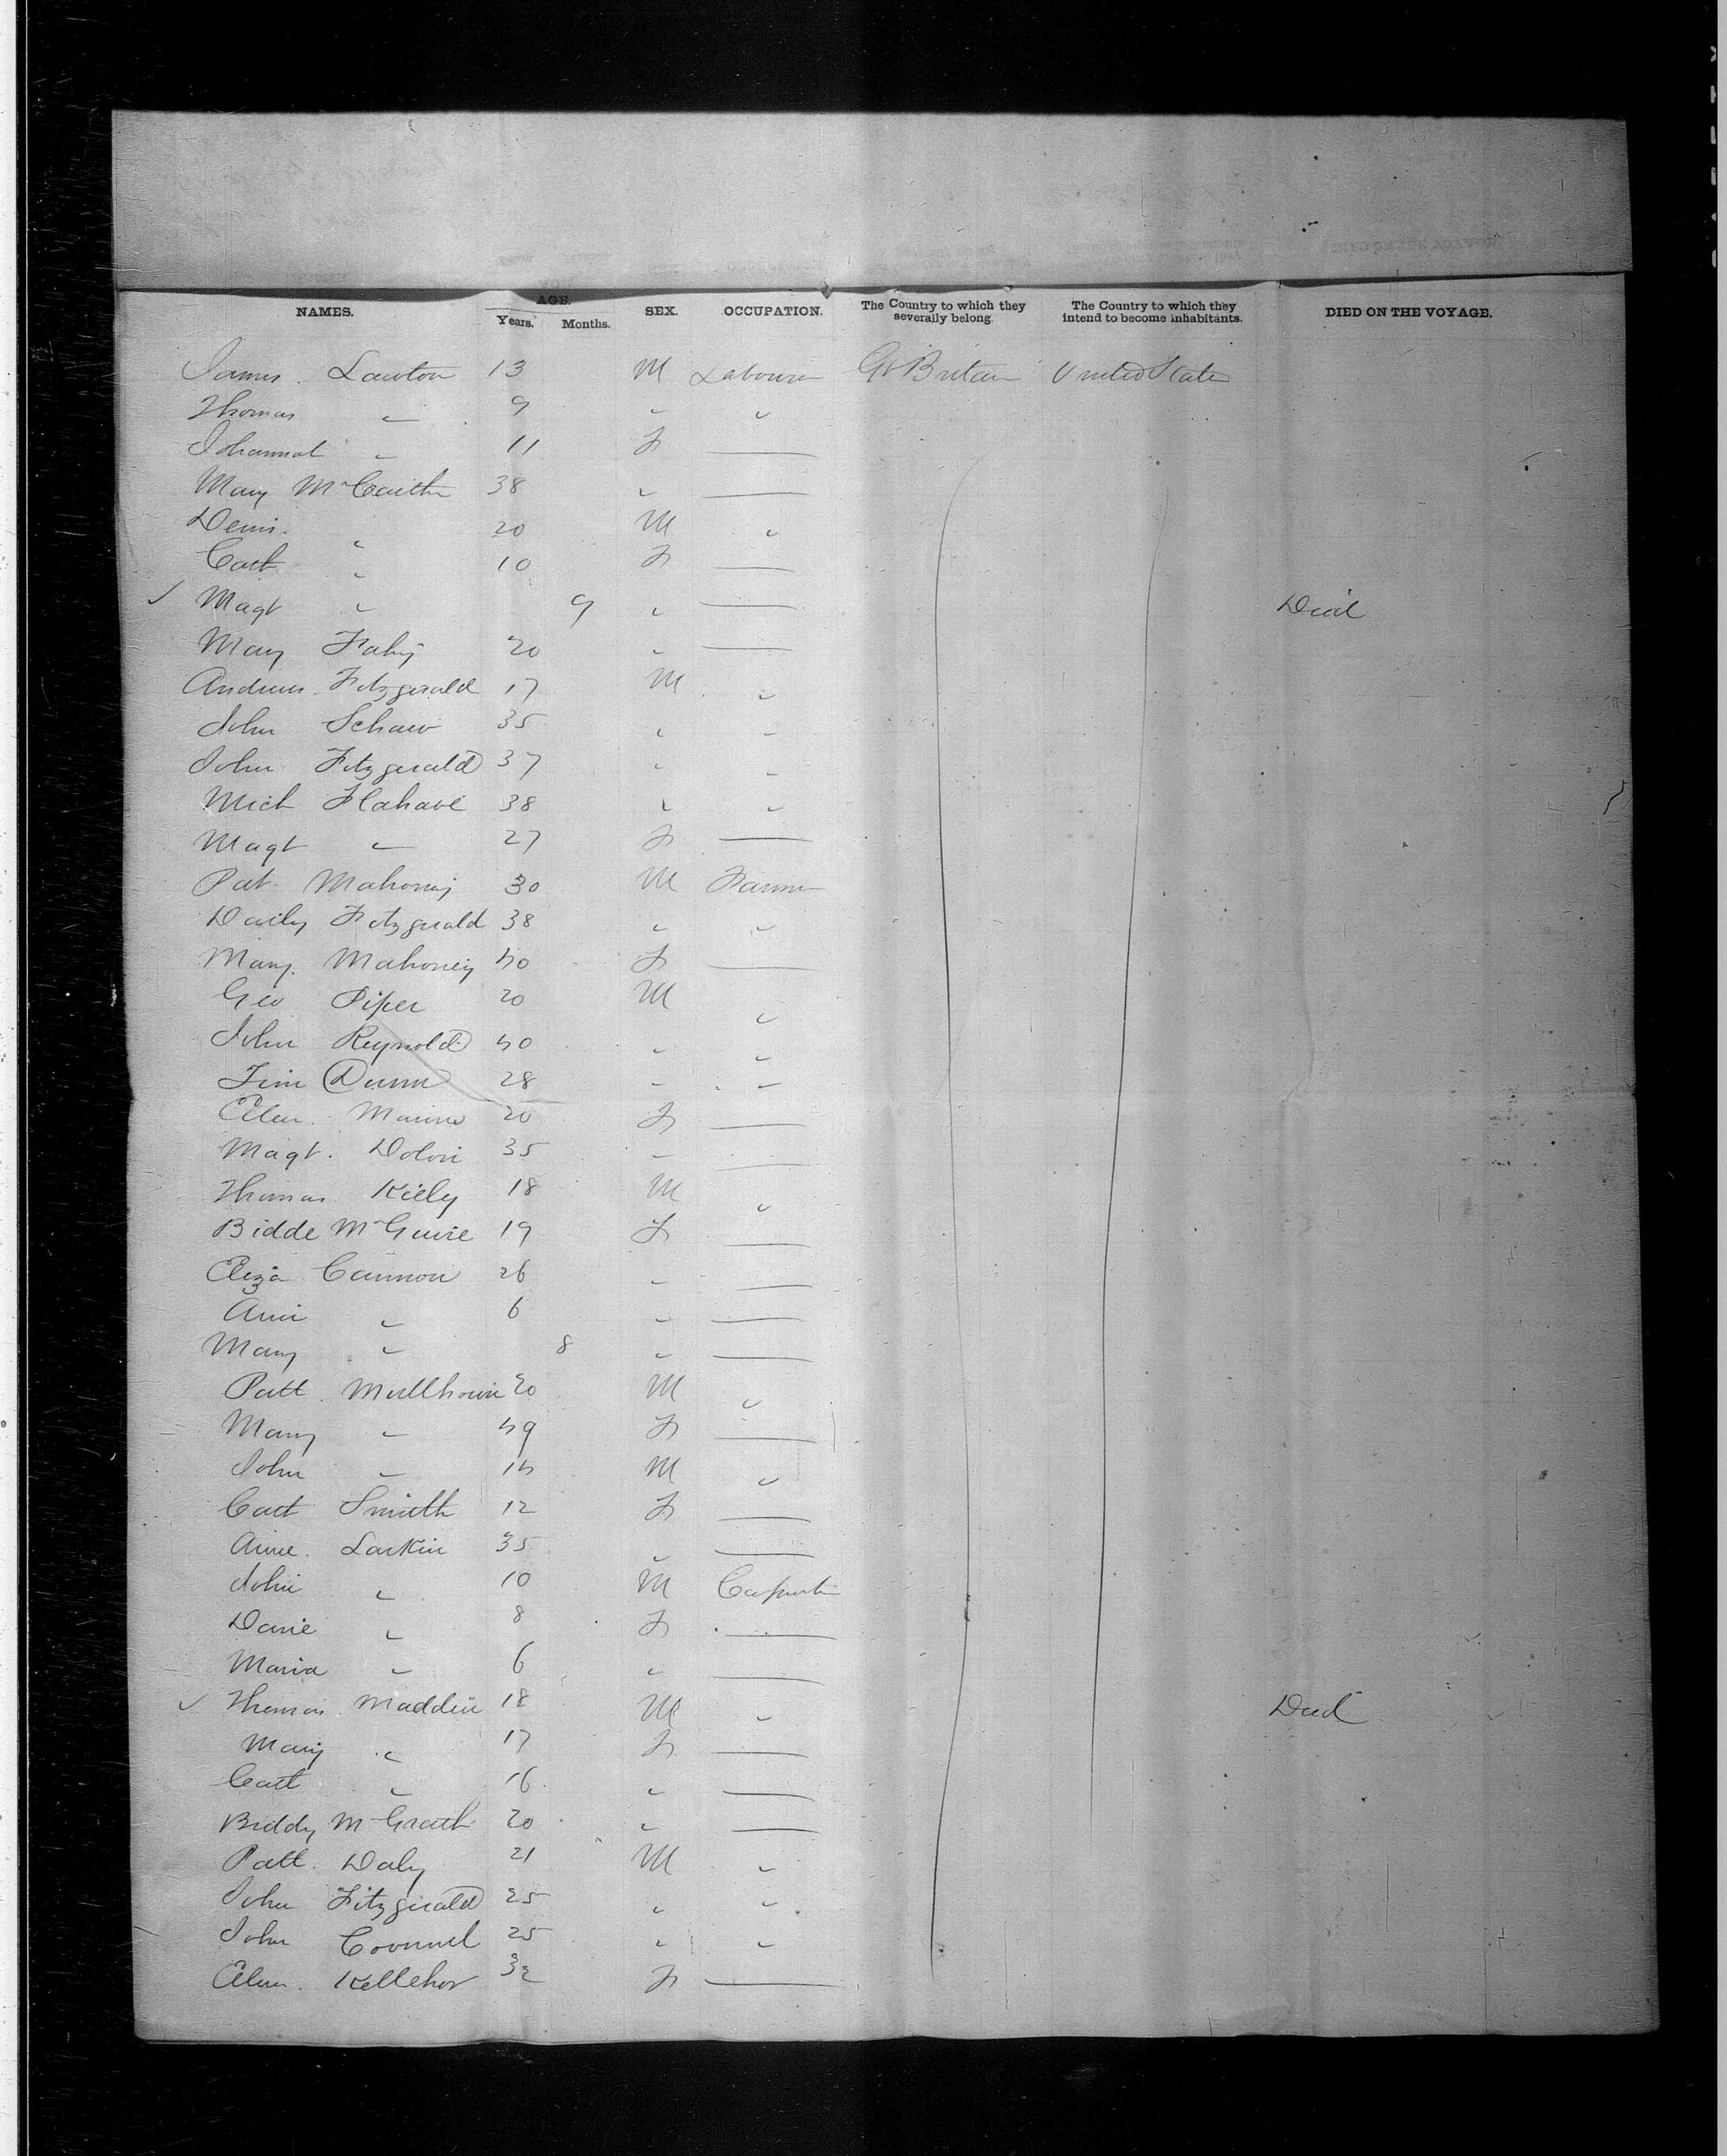 NAMES. AGE. Years. Months. SEX. OCCUPATION. The Country to which they severally belong. The Country to which they intend to become inhabitants. DIED ON THE VOYAGE.
James Lawton 13 M Labourer Gt Britain United States
Thomas " 9 " "
Johannah " 11 F —
Mary McCarthy 38 " —
Denis " 20 M "
Cath " 10 F —
✓ Magt " 9 " — Died
Mary Fahy 20 " —
Andrew Fitzgerald 17 M "
John Schaw 35 " "
John Fitzgerald 37 " "
Mich Flahave 38 " "
Magt " 27 F —
Pat Mahony 30 M Farmer
Fitzgerald 38 " "
Mary Mahoney 40 F —
Geo Piper 20 M "
John Reynold 40 " "
Tim Dunn 28 " "
Ellen 20 F —
Magt. 35 " —
Thomas Kiely 18 M "
Bidde McGuire 19 F —
Eliza Cannon 26 " —
Ann " 6 " —
Mary " 8 " —
Patt 20 M "
Mary " 49 F —
John " 14 M "
Cath Smith 12 F —
Anne Larkin 35 " —
John " 10 M Carpenter
" 8 F —
Maria " 6 " —
✓ Thomas Madden 18 M " Died
Mary " 17 F —
Cath " 16 " —
Biddy McGrath 20 " —
Patt. Daly 21 M "
John Fitzgerald 25 " "
John 25 " "
Ellen Kelleher 32 F —